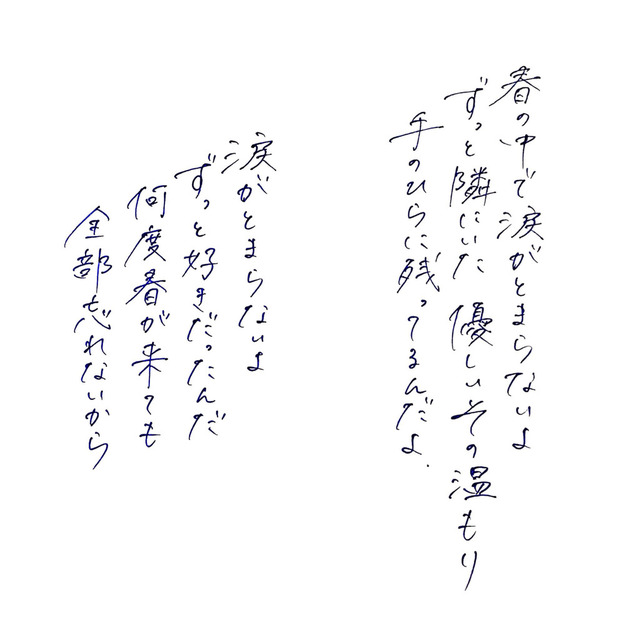 春の中で涙がとまらないよ
ずっと隣にいた 優しいその温もり
手のひらに残ってるんだよ.
涙がとまらないよ
ずっと好きだったんだ
何度春が来ても
全部忘れないから